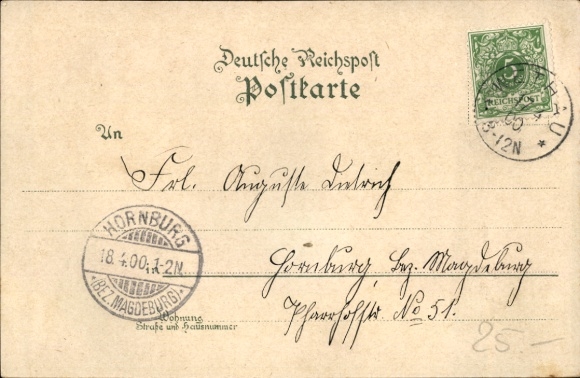 Deutsche Reichspost
Postkarte
5
REICHSPOST
THAU
00
8-12N
*
An
Frl. Auguste Dietrich
HORNBURG
18.4.00.1-2N
*(BEZ. MAGDEBURG)*
Hornburg, Bez. Magdeburg
Pfarrhofstr. No 51.
Wohnung
Straße und Hausnummer
25.-